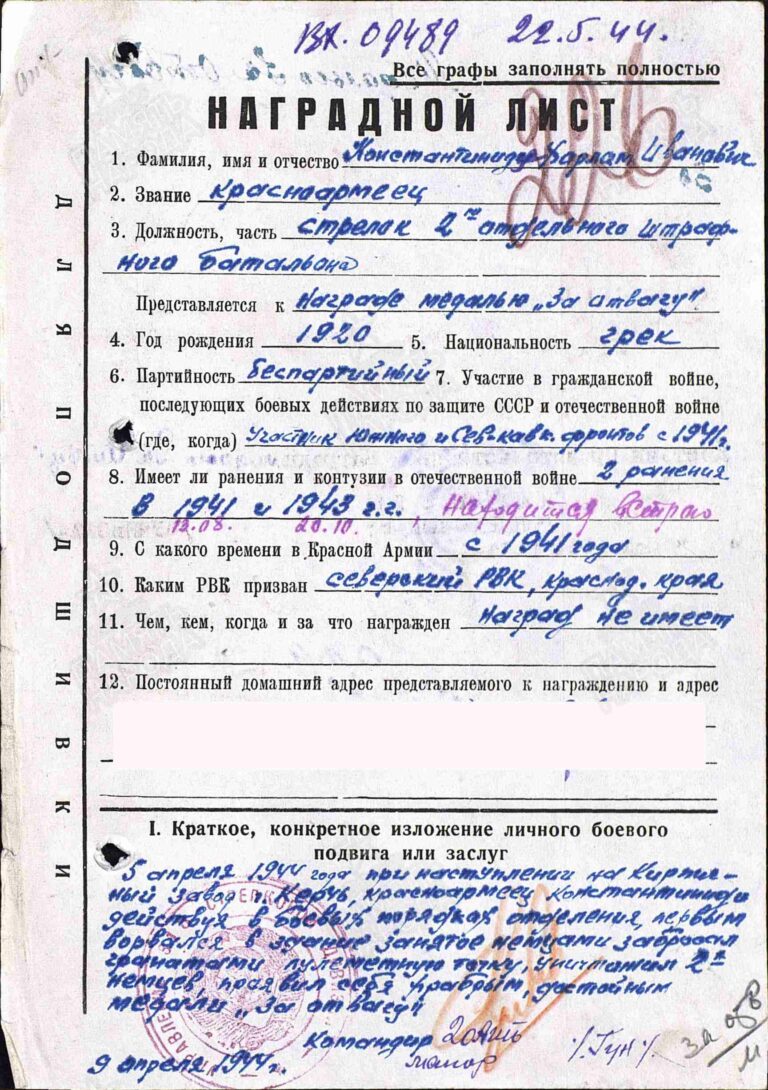 Вх. 09489 22.5.44.
Все графы заполнять полностью
НАГРАДНОЙ ЛИСТ
226
1. Фамилия, имя и отчество Константиниди Харлам Иванович
2. Звание красноармеец
3. Должность, часть стрелок 2го отдельного штраф-
ного батальона
Представляется к награде медалью „За отвагу"
4. Год рождения 1920 5. Национальность грек
6. Партийность беспартийный 7. Участие в гражданской войне,
последующих боевых действиях по защите СССР и отечественной войне
(где, когда) Участник Южного и Сев-кавк. фронтов с 1941г.
8. Имеет ли ранения и контузии в отечественной войне 2 ранения
в 1941 и 1943 г.г. находится в строю
12.08. 20.10.
9. С какого времени в Красной Армии с 1941 года
10. Каким РВК призван северский РВК, краснод. края
11. Чем, кем, когда и за что награжден наград не имеет
12. Постоянный домашний адрес представляемого к награждению и адрес
I. Краткое, конкретное изложение личного боевого
подвига или заслуг
5 апреля 1944 года при наступлении на Кирпич-
ный завод г. Керчь, красноармеец Константиниди
действуя в боевых порядках отделения, первым
ворвался в здание занятое немцами забросал
гранатами пулеметную точку, уничтожил 2х
немцев, проявил себя храбрым, достойным
медали „За отвагу"
Командир 2 ОАШБ
майор /Гун/
9 апреля 1944г.
ДЛЯ ПОДШИВКИ